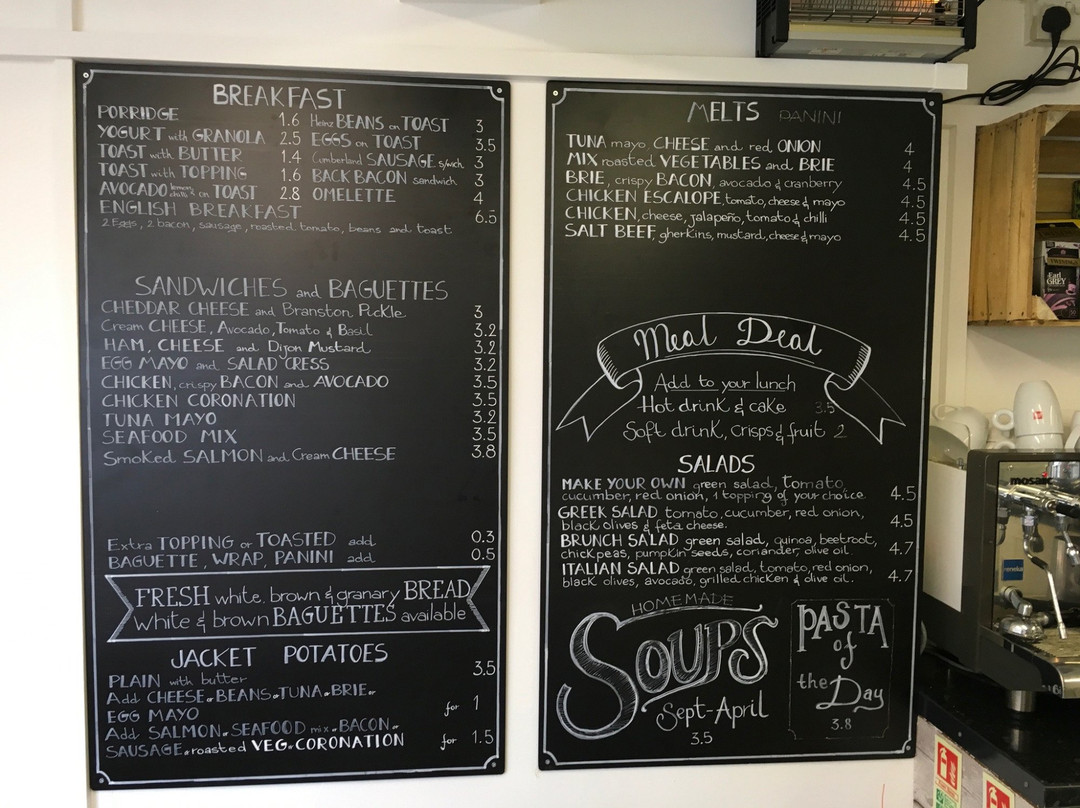 BREAKFAST
PORRIDGE 1.6
YOGURT with GRANOLA 2.5
TOAST with BUTTER 1.4
TOAST with TOPPING 1.6
AVOCADO lemon, chilli & on TOAST 2.8
Heinz BEANS on TOAST 3
EGGS on TOAST 3.5
Cumberland SAUSAGE s/wich 3
BACK BACON sandwich 3
OMELETTE 4
ENGLISH BREAKFAST 6.5
2 Eggs, 2 bacon, sausage, roasted tomato, beans and toast
SANDWICHES and BAGUETTES
CHEDDAR CHEESE and Branston Pickle 3
Cream CHEESE, Avocado, Tomato & Basil 3.2
HAM, CHEESE and Dijon Mustard 3.2
EGG MAYO and SALAD CRESS 3.2
CHICKEN, crispy BACON and AVOCADO 3.5
CHICKEN CORONATION 3.5
TUNA MAYO 3.2
SEAFOOD MIX 3.5
Smoked SALMON and Cream CHEESE 3.8
Extra TOPPING or TOASTED add 0.3
BAGUETTE, WRAP, PANINI add 0.5
FRESH white, brown & granary BREAD
White & brown BAGUETTES available
JACKET POTATOES
PLAIN with butter 3.5
Add CHEESE or BEANS or TUNA or BRIE or
EGG MAYO for 1
Add SALMON or SEAFOOD mix or BACON or
SAUSAGE or roasted VEG or CORONATION for 1.5
MELTS PANINI
TUNA mayo, CHEESE and red ONION 4
MIX roasted VEGETABLES and BRIE 4
BRIE, crispy BACON, avocado & cranberry 4.5
CHICKEN ESCALOPE, tomato, cheese & mayo 4.5
CHICKEN, cheese, jalapeño, tomato & chilli 4.5
SALT BEEF, gherkins, mustard, cheese & mayo 4.5
Meal Deal
Add to your lunch
Hot drink & cake 3.5
Soft drink, Crisps & fruit 2
SALADS
MAKE YOUR OWN green salad, Tomato,
cucumber, red onion, 1 topping of your choice 4.5
GREEK SALAD tomato, cucumber, red onion,
black olives & feta cheese. 4.5
BRUNCH SALAD green salad, quinoa, beetroot,
chickpeas, pumpkin seeds, coriander, olive oil. 4.7
ITALIAN SALAD green salad, tomato, red onion,
black olives, avocado, grilled chicken & olive oil. 4.7
HOMEMADE
SOUPS
Sept-April
3.5
PASTA
of
the Day
3.8
TWININGS
Earl
GREY
mosaic